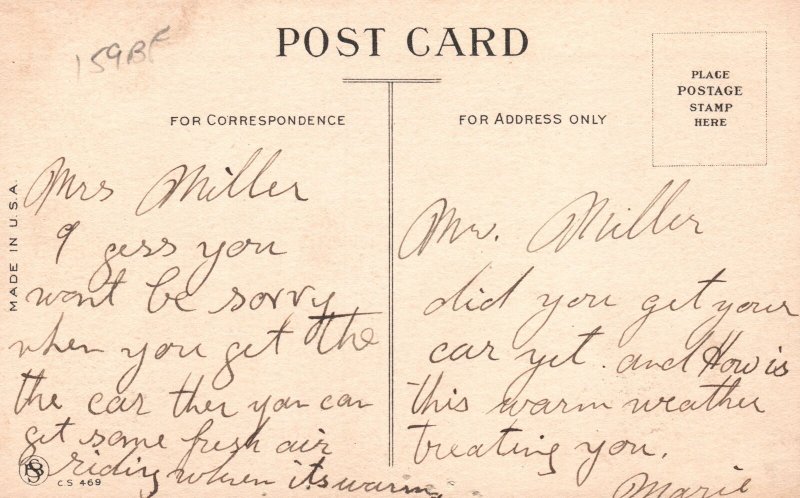 159BF
POST CARD
PLACE
POSTAGE
STAMP
HERE
FOR CORRESPONDENCE
FOR ADDRESS ONLY
MADE IN U.S.A.
Mrs Miller
I gess you
wont be sorry
when you get the
the car then you can
get some fresh air
riding when its warm
C S 469
Mr. Miller
did you get your
car yet. and How is
this warm weather
treating you.
Marie